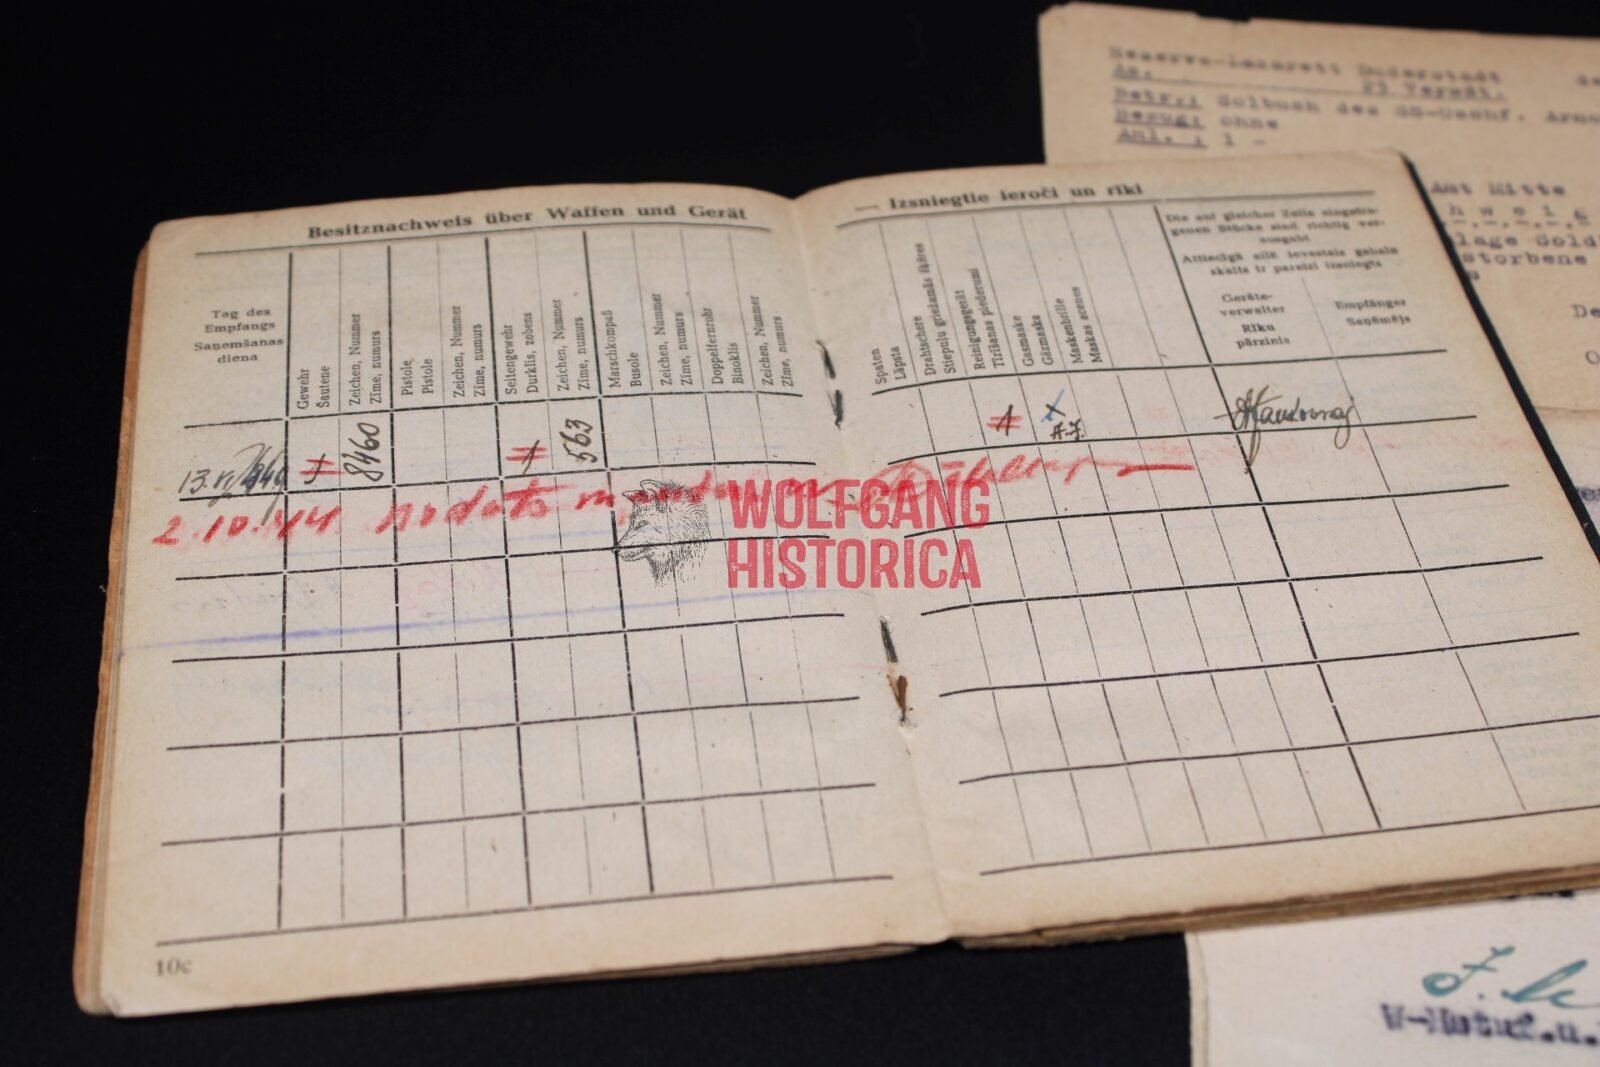 Reserve-Lazarett Duderstadt
Az.
Betr.: Soldbuch des SS-Uschf.
Bezug: ohne
Anl. : 1 -
Mitte
h w e i g
storbene
Besitznachweis über Waffen und Gerät
— Izsniegtie ieroči un rīki
Tag des
Empfangs
Saņemšanas
diena
Gewehr
Šautene
Zeichen, Nummer
Zīme, numurs
Pistole
Pistole
Zeichen, Nummer
Zīme, numurs
Seitengewehr
Durklis, zobens
Zeichen, Nummer
Zīme, numurs
Marschkompaß
Busole
Zeichen, Nummer
Zīme, numurs
Doppelfernrohr
Binoklis
Zeichen, Nummer
Zīme, numurs
Spaten
Lāpsta
Drahtschere
Stiepuļu griežamās šķēres
Reinigungsgerät
Tīrīšanas piederumi
Gasmaske
Gāzmaska
Maskenbrille
Maskas acenes
Die auf gleicher Zeile eingetra-
genen Stücke sind richtig ver-
ausgabt
Attiecīgā ailē ievestais gabalu
skaits ir pareizi izsniegts
Geräte-
verwalter
Rīku
pārzinis
Empfänger
Saņēmējs
8460
563
2.10.44. nodots
WOLFGANG
HISTORICA
10c